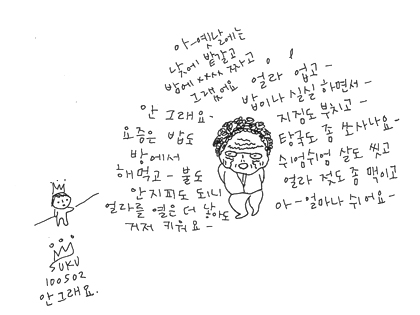 아-옛날에는
낮에 밭갈고
밤에 xxxx 짜고
그랬어요
얼라 업고-
밥이나 실실 하면서-
지짐도 부치고-
탕국도 좀 쏘사나요-
쉬엄쉬엄 살도 씻고
얼라 젖도 좀 맥이고
아-얼마나 쉬어요-
안 그래요.
요즘은 밥도
방에서
해먹고- 불도
안지피도 되니
얼라를 열은 더 낳아도
거저 키워요-
SUKU
100502
안그래요.